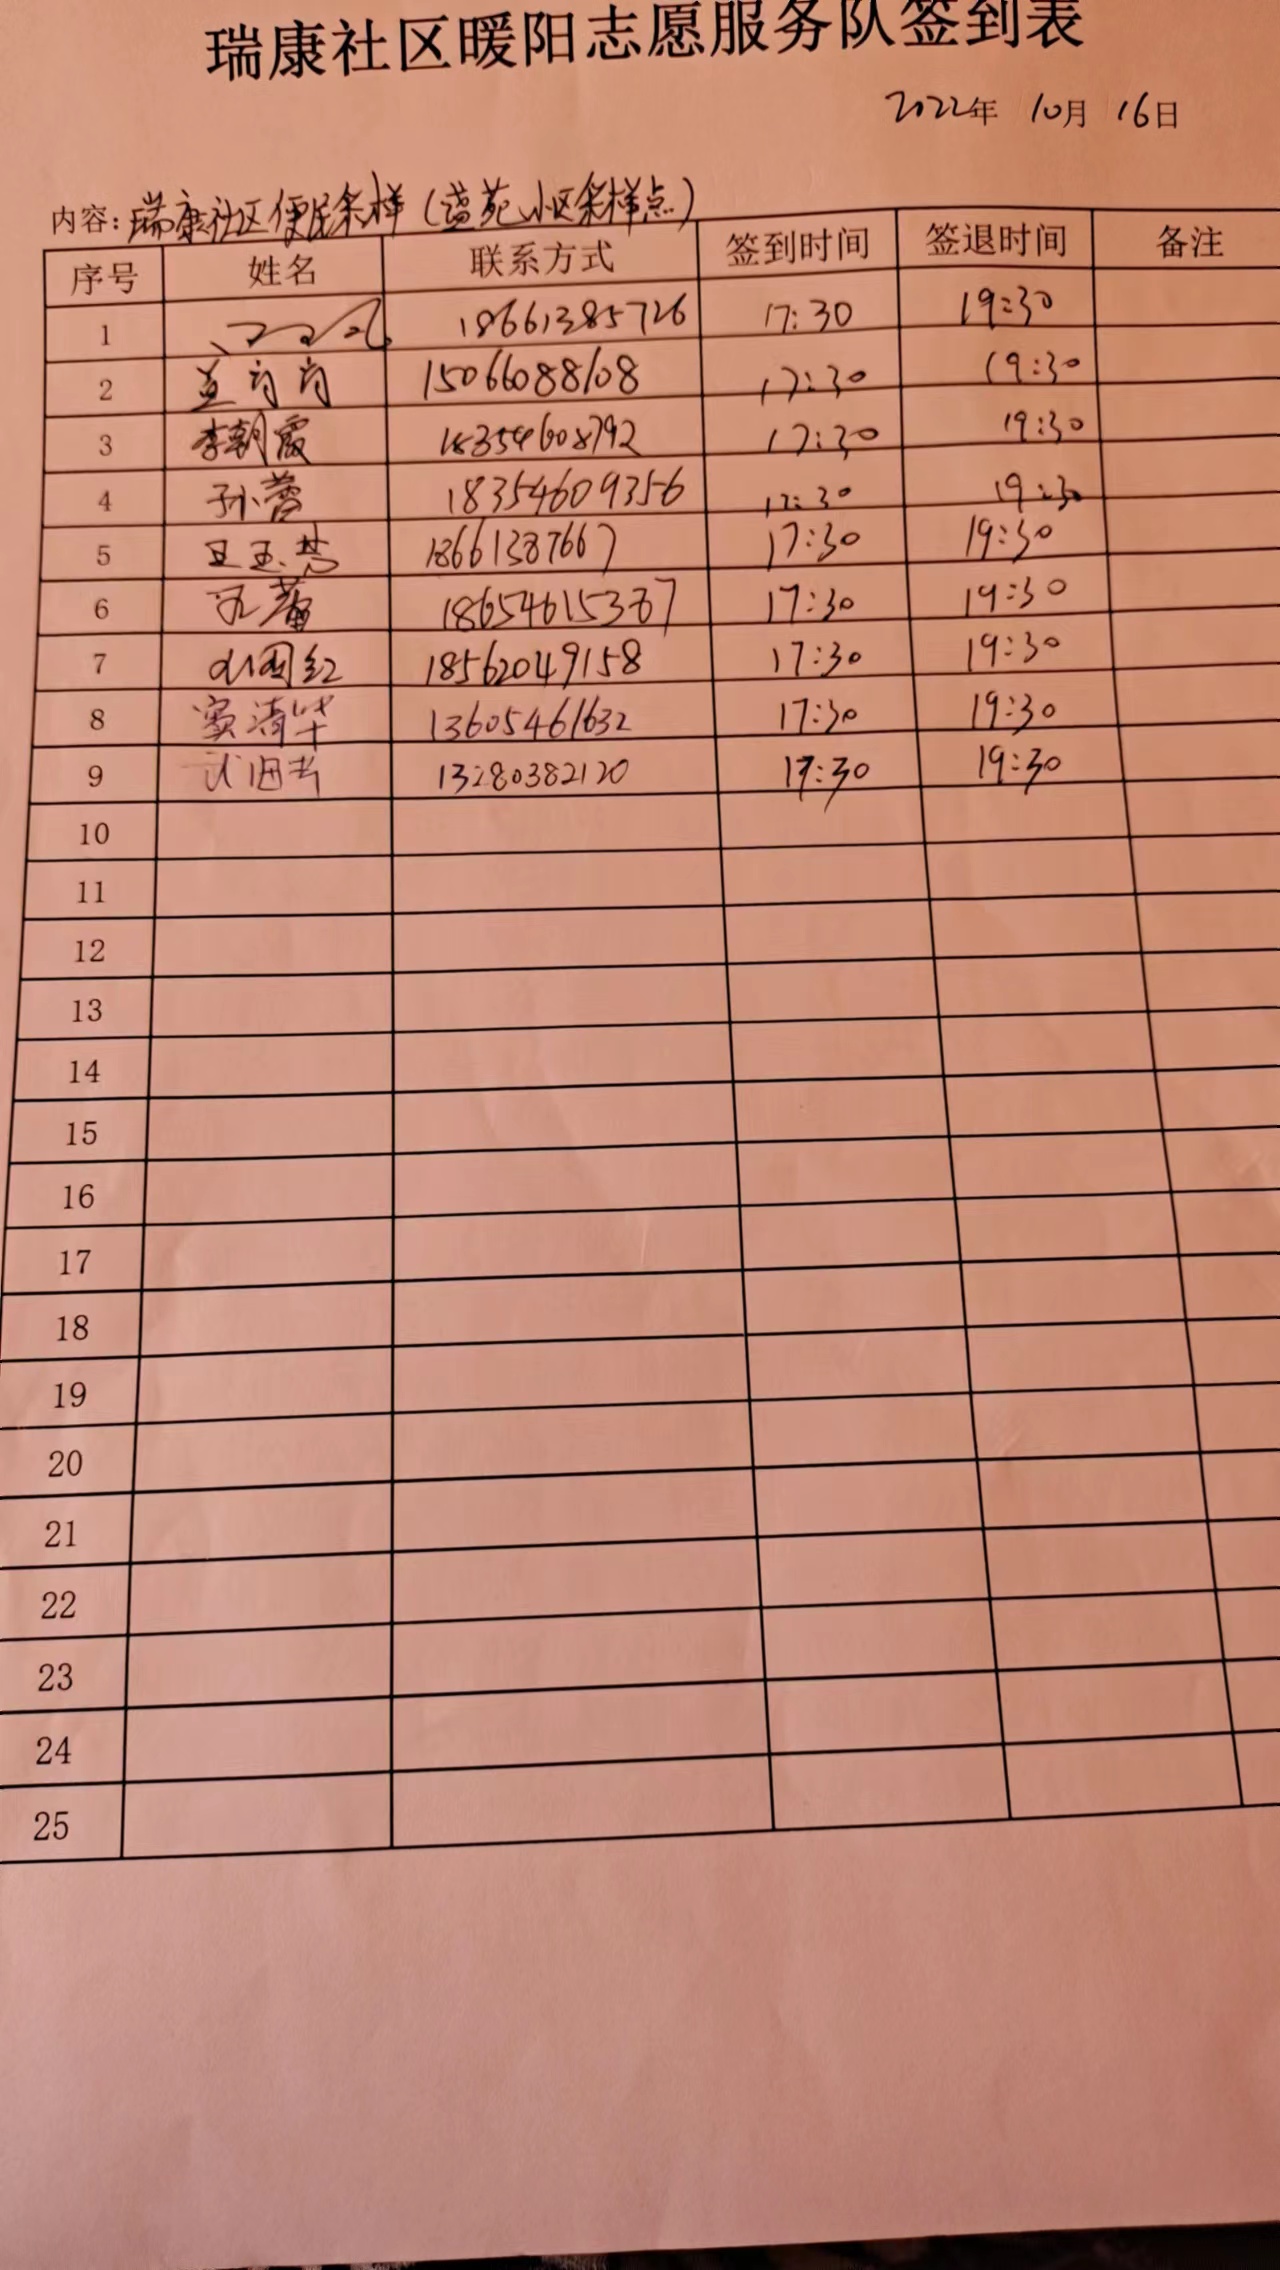 瑞康社区暖阳志愿服务队签到表
2022年 10月 16日
内容：瑞康社区便民采样（蓝苑小区采样点）
序号 姓名 联系方式 签到时间 签退时间 备注
1 18661385726 17:30 19:30
2 15066088108 17:30 19:30
3 李朝霞 18354608792 17:30 19:30
4 孙蓉 18354609356 17:30 19:30
5 18661387667 17:30 19:30
6 17:30 19:30
7 18562049158 17:30 19:30
8 窦清华 13605461632 17:30 19:30
9 13280382120 17:30 19:30
10
11
12
13
14
15
16
17
18
19
20
21
22
23
24
25